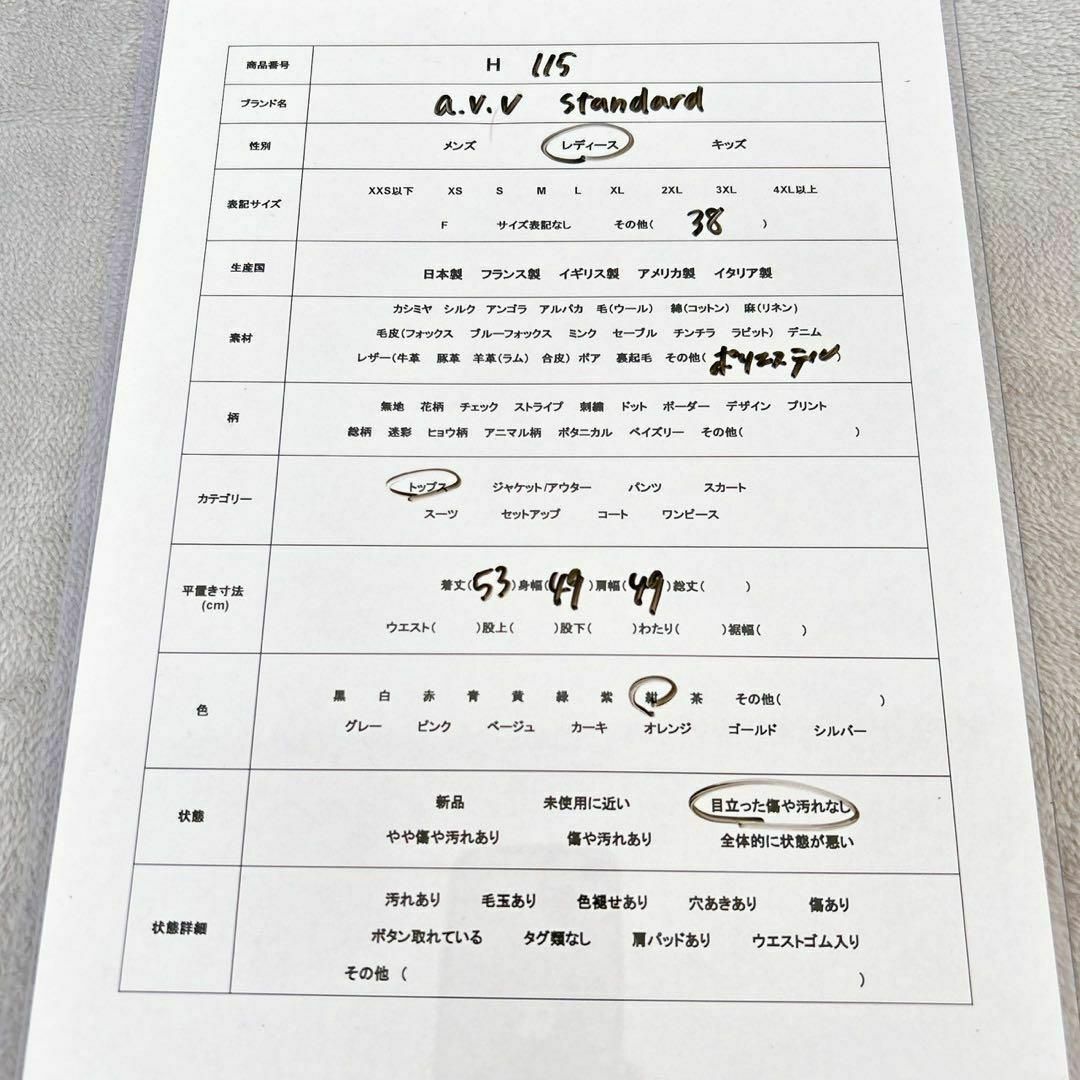 商品番号 H 115
ブランド名 a.v.v standard
性別 メンズ レディース キッズ
表記サイズ XXS以下 XS S M L XL 2XL 3XL 4XL以上
F サイズ表記なし その他( 38 )
生産国 日本製 フランス製 イギリス製 アメリカ製 イタリア製
カシミヤ シルク アンゴラ アルパカ 毛(ウール) 綿(コットン) 麻(リネン)
素材 毛皮(フォックス ブルーフォックス ミンク セーブル チンチラ ラビット) デニム
レザー(牛革 豚革 羊革(ラム) 合皮) ボア 裏起毛 その他( ポリエステル )
柄 無地 花柄 チェック ストライプ 刺繍 ドット ボーダー デザイン プリント
総柄 迷彩 ヒョウ柄 アニマル柄 ボタニカル ペイズリー その他( )
カテゴリー トップス ジャケット/アウター パンツ スカート
スーツ セットアップ コート ワンピース
平置き寸法 着丈( 53 )身幅( 49 )肩幅( 49 )総丈( )
(cm) ウエスト( )股上( )股下( )わたり( )裾幅( )
色 黒 白 赤 青 黄 緑 紫 紺 茶 その他( )
グレー ピンク ベージュ カーキ オレンジ ゴールド シルバー
状態 新品 未使用に近い 目立った傷や汚れなし
やや傷や汚れあり 傷や汚れあり 全体的に状態が悪い
汚れあり 毛玉あり 色褪せあり 穴あきあり 傷あり
状態詳細 ボタン取れている タグ類なし 肩パッドあり ウエストゴム入り
その他 ( )